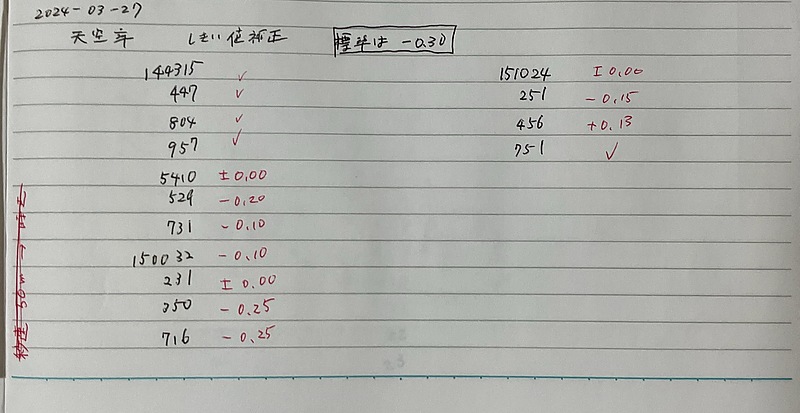 2024-03-27
天空率 しきい値補正 標準は -0.30
144315 ✓
447 ✓
804 ✓
957 ✓
5410 ±0.00
529 -0.20
731 -0.10
150032 -0.10
231 ±0.00
350 -0.25
716 -0.25
151024 ±0.00
251 -0.15
456 +0.13
751 ✓